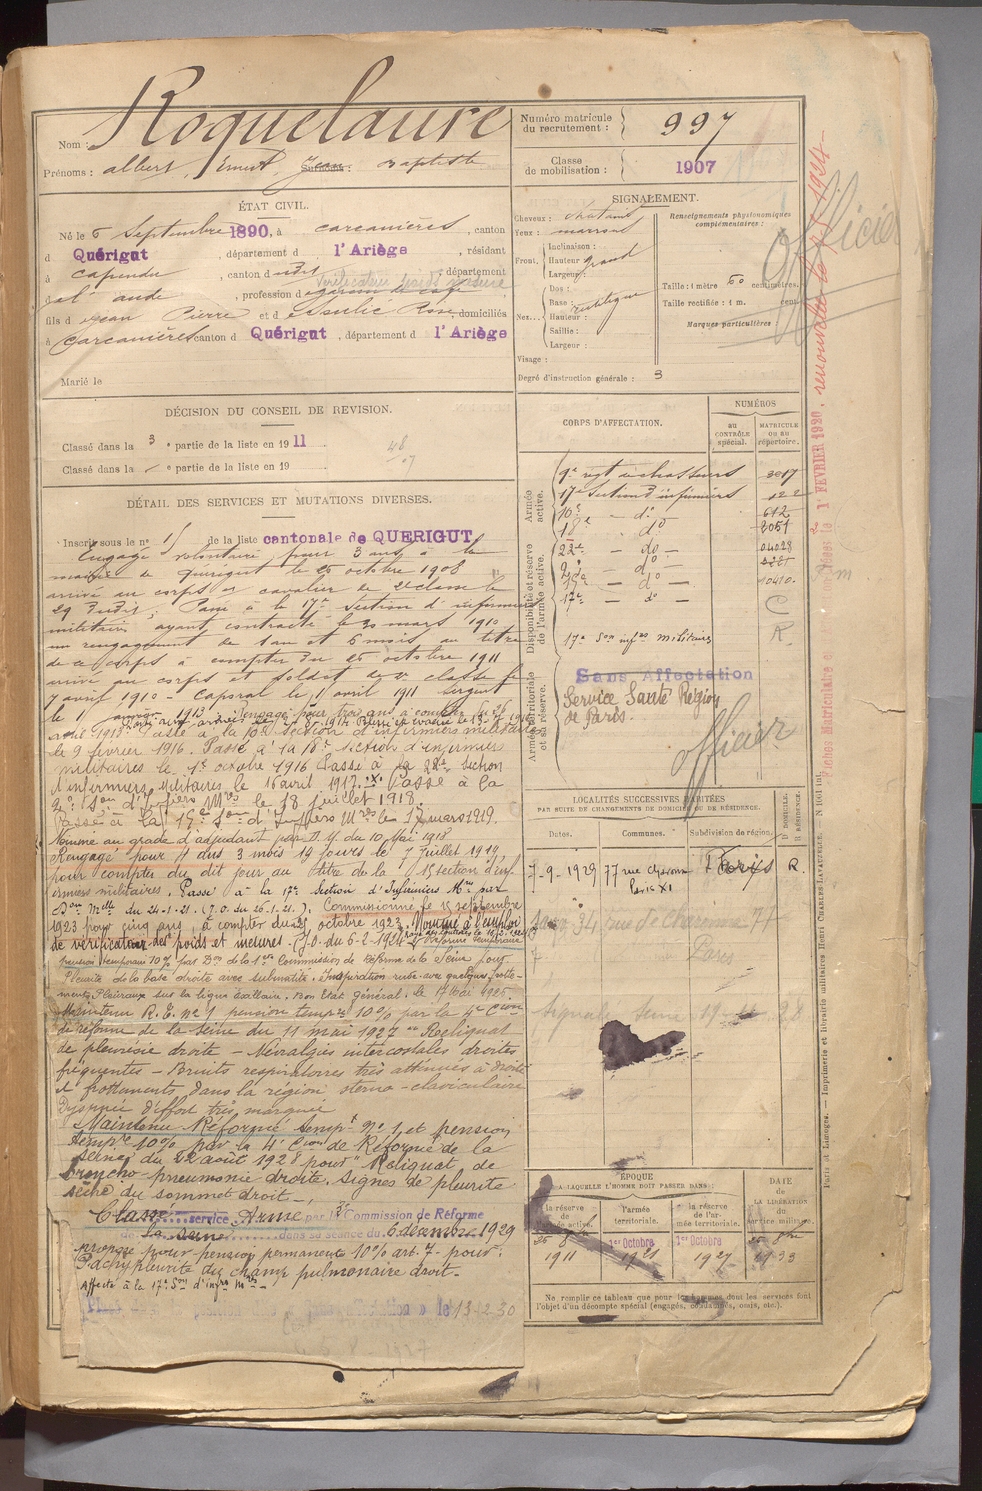 Nom : Roquelaure
Prénoms : albert, Ernest, Jean Surnoms : Baptiste
Numéro matricule du recrutement : 997
Classe de mobilisation : 1907
ÉTAT CIVIL.
Né le 6 Septembre 1890, à Carcanières, canton
d Quérigut, département d l'Ariège, résidant
à Capendu, canton d udit, département
d l'aude, profession d
Vérificateur poids mesure
fils d Jean Pierre et d Rose domiciliés
à Carcanières canton d Quérigut, département d l'Ariège
Marié le
SIGNALEMENT.
Cheveux : chatains
Yeux : marrons
Front. Inclinaison :
Hauteur : grand
Largeur :
Nez... Dos :
Base : rectiligne
Hauteur :
Saillie :
Largeur :
Visage :
Renseignements physionomiques complémentaires :
Taille : 1 mètre 60 centimètres.
Taille rectifiée : 1 m. cent.
Marques particulières :
Degré d'instruction générale : 3
Officier
DÉCISION DU CONSEIL DE REVISION.
Classé dans la 3e partie de la liste en 1911
Classé dans la e partie de la liste en 19
DÉTAIL DES SERVICES ET MUTATIONS DIVERSES.
Inscrit sous le n° 1 de la liste cantonale de QUERIGUT
Engagé volontaire pour 3 ans à la
mairie de Quérigut le 26 octobre 1908
arrivé au corps et cavalier de 2e classe le
29 dudit. Passé à la 17e section d'infirmiers
militaires, ayant contracté le 30 mars 1910
un rengagement de 1 an et 6 mois au titre
de ce corps à compter du 26 octobre 1911
arrivé au corps et soldat de 2e classe le
7 avril 1910 - Caporal le 1 avril 1911 Sergent
le 1 janvier 1913 Rengagé pour trois ans à compter du 26
avril 1913 Passé à la 10e Section d'infirmiers militaires
le 9 février 1916. Passé à la 18e section d'infirmiers
militaires le 1er octobre 1916 Passé à la 22e section
d'infirmiers militaires le 16 avril 1917. Passé à la
Son d'Infiers Mres le 18 juillet 1918.
Passé à la 15e Son d'Infiers Mres le 17 mars 1919.
Nommé au grade d'adjudant du 10 Mai 1918
Rengagé pour 4 ans 3 mois 19 jours le 7 juillet 1919
pour compter du dit jour au titre de la 15 section d'inf
irmiers militaires. Passé à la 17e Section d'Infirmiers Mres par
Don Mlle du 24-1-21. (J.O. du 26-1-21.). Commissionné le 15 septembre
1923 pour cinq ans, à compter du 25 octobre 1923. Nommé à l'emploi
de vérificateur des poids et mesures. (J.O. du 6-2-1924)
pension temporaire 10% par Don de la 1ère Commission de Réforme de la Seine pour
Pleurite de la base droite avec submatité. Inspiration rude avec quelques frotte-
ments Pleuraux sur la ligne axillaire. Bon Etat général. le 17 Mai 1925.
Maintenu R. T. n° 1 pension tempre 10% par la 4e Cion
de réforme de la Seine du 11 mai 1927 "Reliquat
de pleurésie droite - Névralgies intercostales droites
fréquentes - Bruits respiratoires très atténués à droite
et frottements dans la région sterno-claviculaire
Dyspnée d'effort très marquée
Maintenu Réformé tempt n° 1 et pension
tempre 10% par la 4e Cion de Réforme de la
Seine du 22 août 1928 pour "Reliquat de
broncho-pneumonie droite. Signes de pleurite
sèche du sommet droit -
Classé service Armé par la 3e Commission de Réforme
de la Seine dans sa séance du 6 décembre 1929
propose pour pension permanente 10% art. 7 - pour :
Pachypleurite du champ pulmonaire droit -
Affecté à la 17e Son d'infrs Mres
le 13.12.30
CORPS D'AFFECTATION.
NUMÉROS
au CONTRÔLE spécial.
MATRICULE ou au répertoire.
Armée active.
9e régt de chasseurs 3017
17e Section d'infirmiers 122
10e - do - 612
18e - do 2051
Disponibilité et réserve de l'armée active.
22e - do - 04028
- do -
15e - do - 10410.
17e - do - C
17e Son infres militaires R.
Armée territoriale et sa réserve.
Sans Affectation
Service Santé Région
de Paris.
Officier
LOCALITÉS SUCCESSIVES HABITÉES
PAR SUITE DE CHANGEMENTS DE DOMICILE OU DE RÉSIDENCE.
Dates. Communes. Subdivision de région. D. DOMICILE. R. RÉSIDENCE.
7-9-1929 77 rue Charonne Paris XI Paris R.
34 rue de Charonne 77
Paris
ÉPOQUE
A LAQUELLE L'HOMME DOIT PASSER DANS :
la réserve de l'armée active.
l'armée territoriale.
la réserve de l'armée territoriale.
DATE DE LA LIBÉRATION du service militaire.
1911
1er Octobre 1921
1er Octobre 1927
1933
Ne remplir ce tableau que pour les hommes dont les services font
l'objet d'un décompte spécial (engagés, condamnés, omis, etc.).
Paris et Limoges. — Imprimerie et librairie militaires Henri CHARLES-LAVAUZELLE.